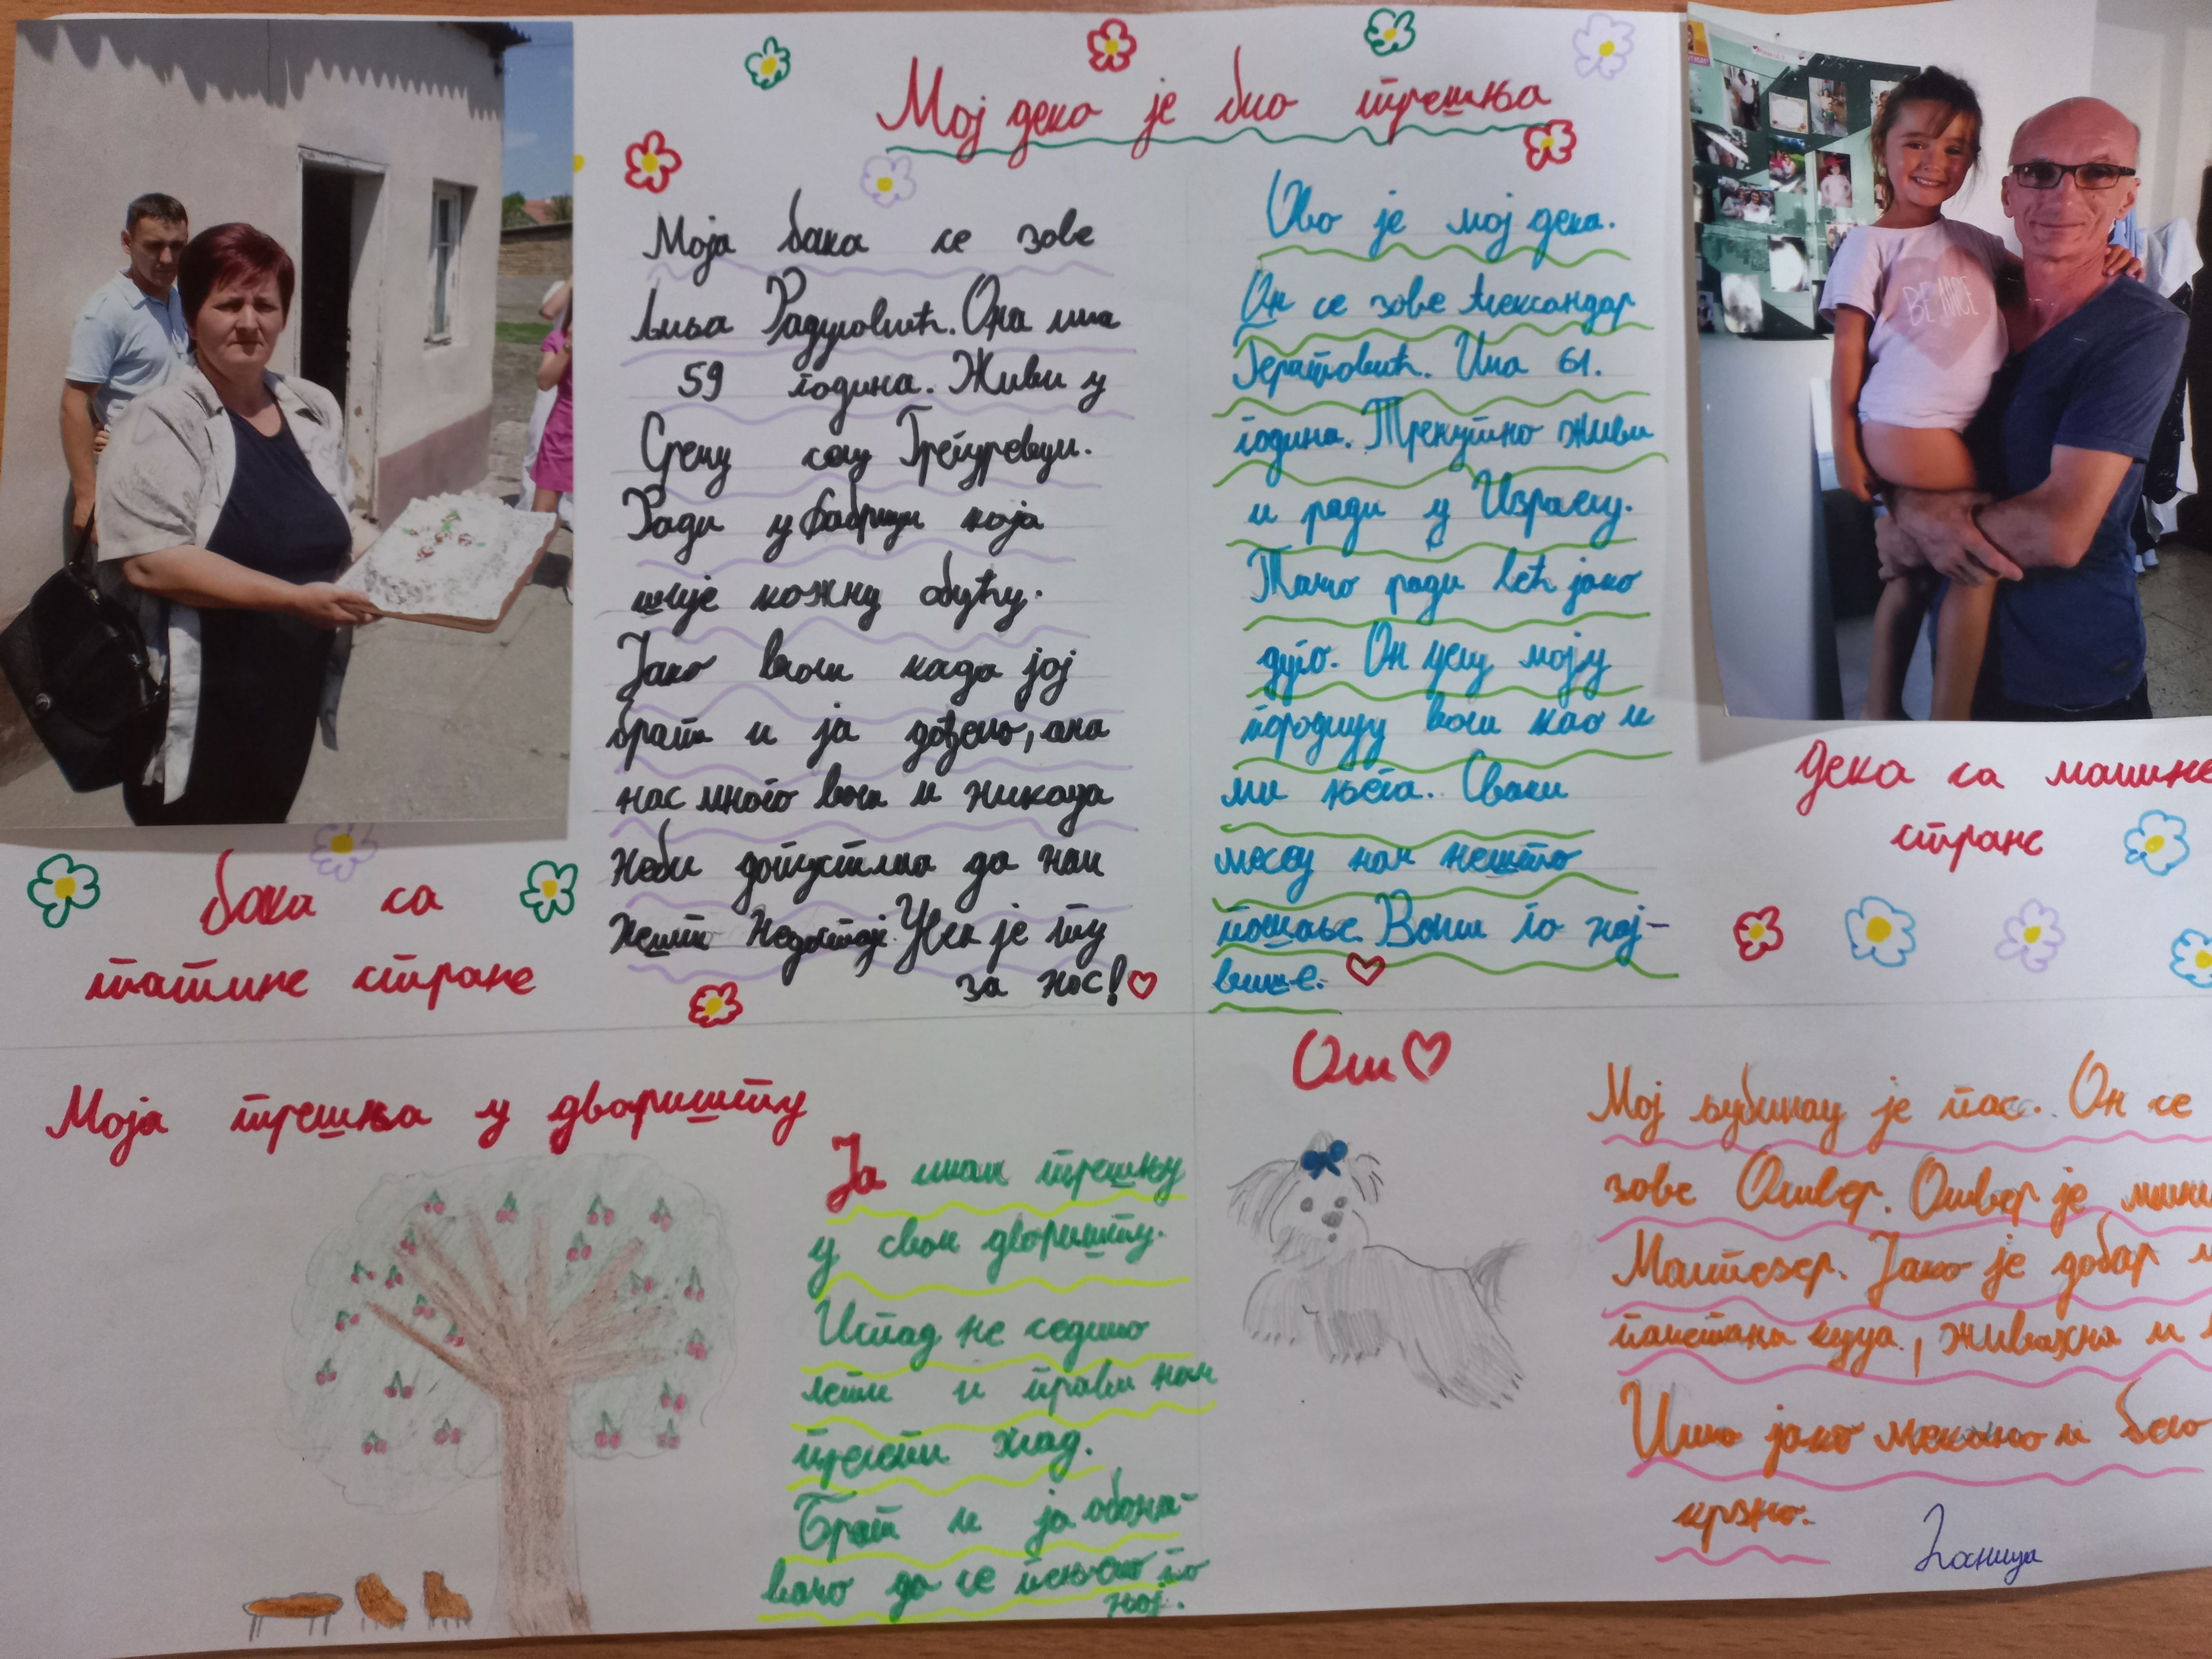 Мој дека је био трешња
Моја бака се зове
Љиља Радуловић. Она има
59 година. Живи у
Срему селу Гргуревци.
Ради у фабрици која
шије кожну обућу.
Јако воли када јој
брат и ја дођемо, она
нас много воли и никада
неби допустила да нам
нешто недостаје. Увек је ту
за нас!
Ово је мој дека.
Он се зове Александар
Гератовић. Има 61.
година. Тренутно живи
и ради у Израелу.
Тамо ради већ јако
дуго. Он целу моју
породицу воли као и
ми њега. Сваки
месец нам нешто
пошаље. Волим га нај-
више.
BE NICE
бака са
татине стране
дека са мамине
стране
Моја трешња у дворишту
Ја имам трешњу
у свом дворишту.
Испод ње седимо
лети и прави нам
прелепи хлад.
Брат и ја обожа-
вамо да се пењемо по
њој.
Оли
Мој љубимац је пас. Он се
зове Оливер. Оливер је мини
Малтезер. Јако је добар и
паметана куца, живахна и
Има јако мекано и бело
крзно.
Даница